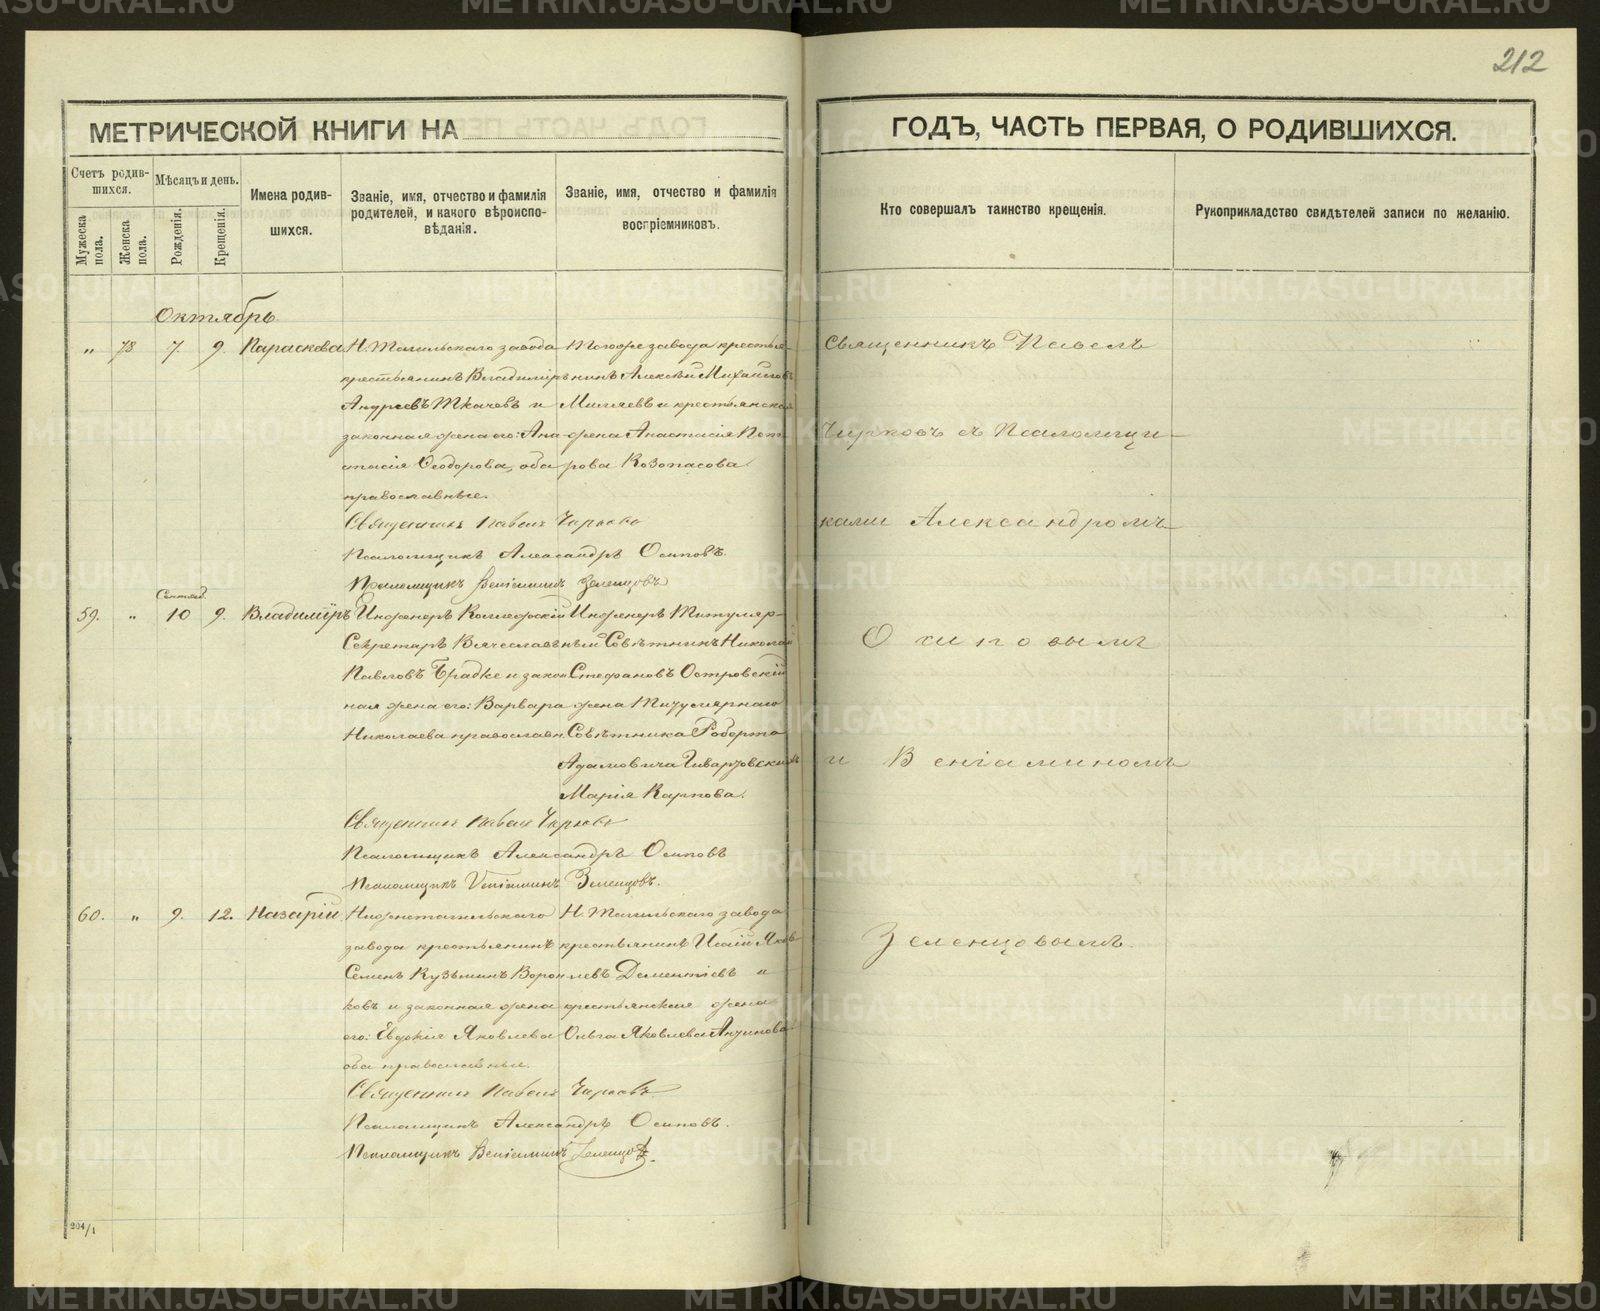 212
МЕТРИЧЕСКОЙ КНИГИ НА
ГОДЪ, ЧАСТЬ ПЕРВАЯ, О РОДИВШИХСЯ.
Счетъ родив-
шихся.
Мужеска пола.
Женска пола.
Мѣсяцъ и день.
Рожденія.
Крещенія.
Имена родив-
шихся.
Званіе, имя, отчество и фамилія
родителей, и какого вѣроиспо-
вѣданія.
Званіе, имя, отчество и фамилія
воспріемниковъ.
Кто совершалъ таинство крещенія.
Рукоприкладство свидѣтелей записи по желанію.
Октябрь
„ 78 7. 9. Параскева
Н. Тагильскаго завода
крестьянинъ Владиміръ
Андреевъ Ткачевъ и
законная жена его: Ана-
стасія Ѳеодорова, оба
православные.
Тогоже завода крестья-
нинъ Алексѣй Михайловъ
и крестьянская
жена Анастасія Пет-
рова Козопасова.
Священникъ Павелъ Чирковъ
Псаломщикъ Александръ Осиповъ.
Псаломщикъ Веніаминъ Зеленцовъ
Сентяб.
59. „ 10 9. Владиміръ
Инженеръ Коллежскій
Секретарь Вячеславъ
Павловъ Брадке и закон-
ная жена его: Варвара
Николаева православн.
Инженеръ Титуляр-
ный Совѣтникъ Николай
Стефановъ Островскій
жена Титулярнаго
Совѣтника Роберта
Адамовича
Марія Карпова.
Священникъ Павелъ Чирковъ
Псаломщикъ Александръ Осиповъ
Псаломщикъ Веніаминъ Зеленцовъ.
60. „ 9. 12. Назарій
Нижнетагильскаго
завода крестьянинъ
Семенъ Кузьминъ Ворон-
ковъ и законная жена
его: Евдокія Яковлева
оба православные.
Н. Тагильскаго завода
крестьянинъ Исаій Яков-
левъ Дементіевъ и
крестьянская жена
Ольга Яковлева
Священникъ Павелъ Чирковъ
Псаломщикъ Александръ Осиповъ.
Псаломщикъ Веніаминъ Зеленцовъ.
Священникъ Павелъ
Чирковъ съ Псаломщи-
ками Александромъ
Осиповымъ
и Веніаминомъ
Зеленцовымъ.
204/1
METRIKI.GASO-URAL.RU